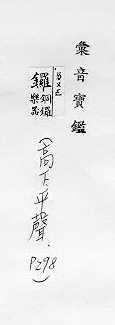 彙音寶鑑
鑼 銅鑼
樂器
(高下平聲.
P298)